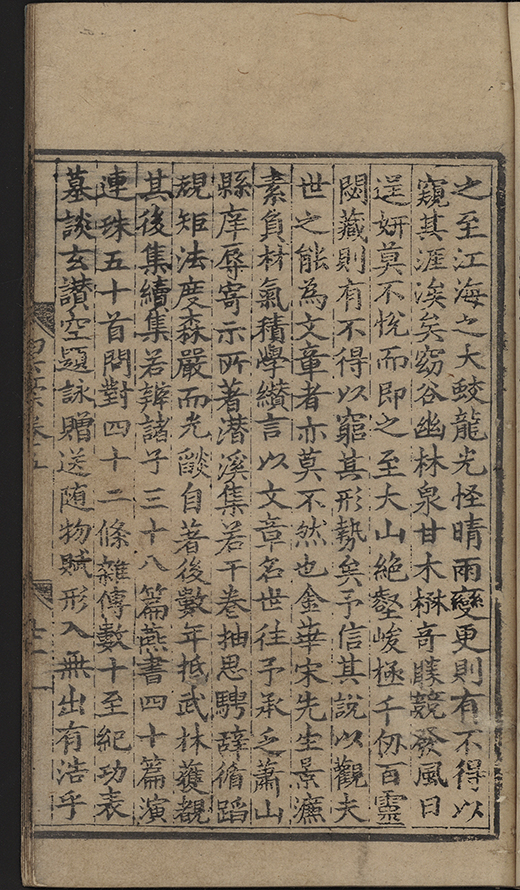 之至江海之大蛟龍光怪晴雨變更則有不得以
窺其涯涘矣窈谷幽林泉甘木樛奇勝競發風日
逞妍莫不悅而即之至大山絕壑峻極千仞百靈
閟藏則有不得以窮其形勢矣予信其說以觀夫
世之能為文章者亦莫不然也金華宋先生景濂
素負材氣積學纉言以文章名世往予承乏蕭山
縣庠辱寄示所著潛溪集若干卷抽思騁辭循蹈
規矩法度森嚴而光燄自著後數年抵武林獲覩
其後集續集若辯諸子三十八篇燕書四十篇演
連珠五十首問對四十二條雜傳數十至紀功表
墓談玄讃空題詠贈送随物賦形入無出有浩乎